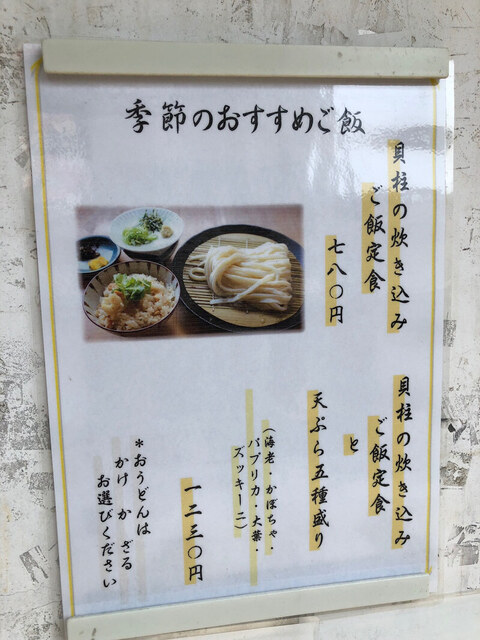 季節のおすすめご飯
貝柱の炊き込み
ご飯定食
七八〇円
貝柱の炊き込み
ご飯定食
と
天ぷら五種盛り
（海老・かぼちゃ・
パプリカ・大葉・
ズッキーニ）
一二三〇円
＊おうどんは
かけ か ざる
お選びください